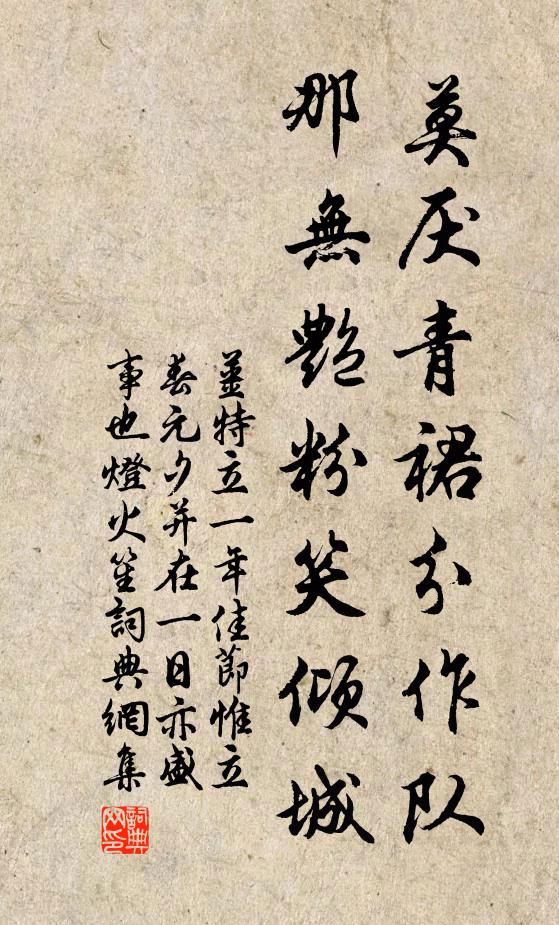 莫厌青裙分作队
那無艷粉笑倾城
姜特立一年佳節惟立
春元夕并在一日亦盛
事也燈火笙詞典網集
詞典网印